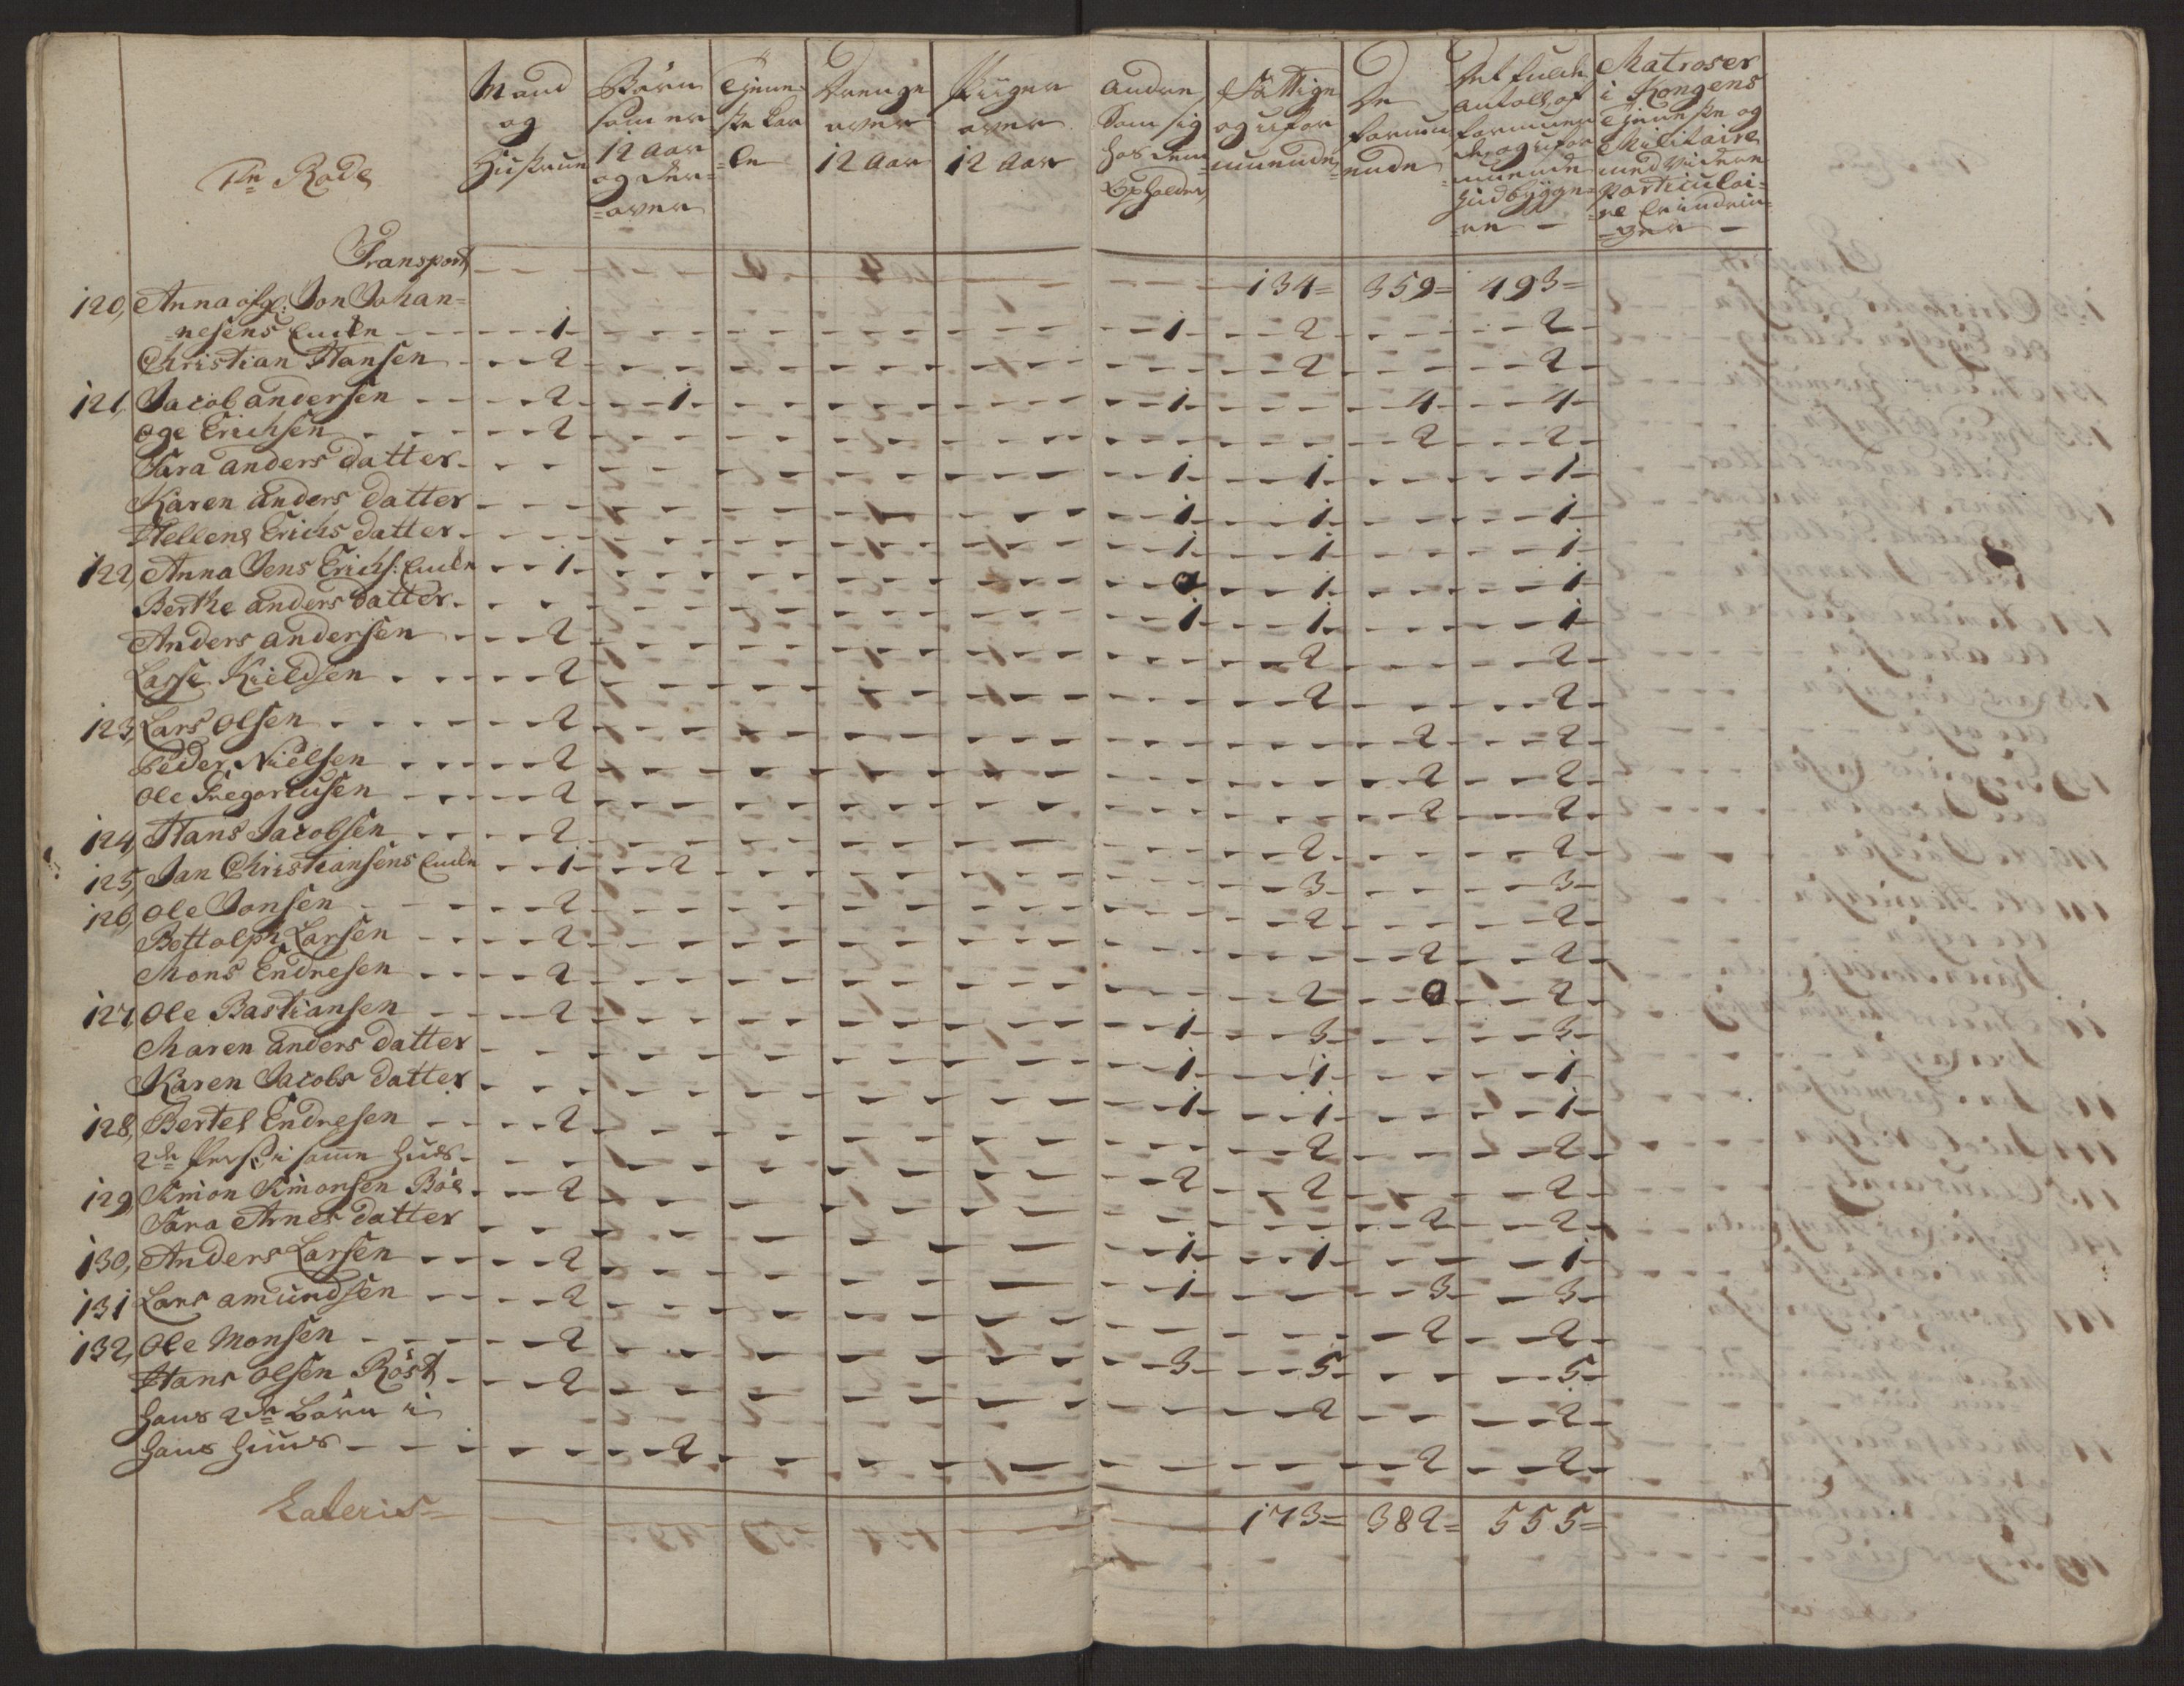 1ste Rode
Mand og Hustrue
Børn som er 12 Aar og der-over
Tjene-ste Kar-le
Drenge over 12 Aar
Piiger over 12 Aar
Andre Som sig hos dem Opholder
Fattige og ufor-muende
De formu-ende
Det fulde antall af formuende og ufor-muende Indbygge-re -
Matroser i Kongens Tjeneste og Militaire med videre particulai-re Erindrin-ger -
Transport - - - 134= 359= 493=
120, Anna Jon Johan=
=nesens Enke - - 1 - - 1 - - 2 - - 2 -
Christian Hansen - - 2 - - 2 - - 2 -
121, Jacob andersen - - 2 - - 1 - - 1 - - 4 - - 4 -
Oge Erichsen - - 2 - - 2 - - 2 -
Sara anders datter - - 1 - - 1 - - 1 -
Karen anders datter - - 1 - - 1 - - 1 -
Hellene Erichs datter - - 1 - - 1 - - 1 -
122, Anna Jens Erichs: Enke - - 1 - - 1 - - 1 -
Berthe anders datter - - 1 - - 1 - - 1 -
Anders andersen - - 2 - - 2 - - 2 -
Lasse Kieldsen - - 2 - - 2 - - 2 -
123, Lars Olsen - - 2 - - 2 - - 2 -
Peder Nielsen - - 2 - - 2 - - 2 -
Ole Gregoriusen - - 2 - - 2 - - 2 -
124, Hans Jacobsen - - 2 - - 2 - - 2 -
125, Jan Christiansens Enke - - 1 - - 2 - - 3 - - 3 -
126, Ole Jonsen - - 2 - - 2 - - 2 -
Bottolph Larsen - - 2 - - 2 - - 2 -
Mons Endresen - - 2 - - 2 - - 2 -
127, Ole Bastiansen - - 2 - - 1 - - 3 - - 3 -
Maren anders datter - - 1 - - 1 - - 1 -
Karen Jacobs datter - - 1 - - 1 - - 1 -
128, Bertel Endresen - - 2 - - 2 - - 2 -
2de Pers: i samme Huus - - 2 - - 2 - - 2 -
129, Simon Simonsen Böe - - 2 - - 2 - - 2 -
Sara Arnes datter - - 1 - - 1 - - 1 -
130, Anders Larsen - - 2 - - 1 - - 3 - - 3 -
131 Lars amundsen - - 2 - - 2 - - 2 -
132, Ole Monsen - - 2 - - 3 - - 5 - - 5 -
Hans Olsen Röst - - 2 - - 2 - - 2 -
hans 2de Børn i
hans Huus - - 2 - - 2 - - 2 -
Lateris= 173= 382= 555=